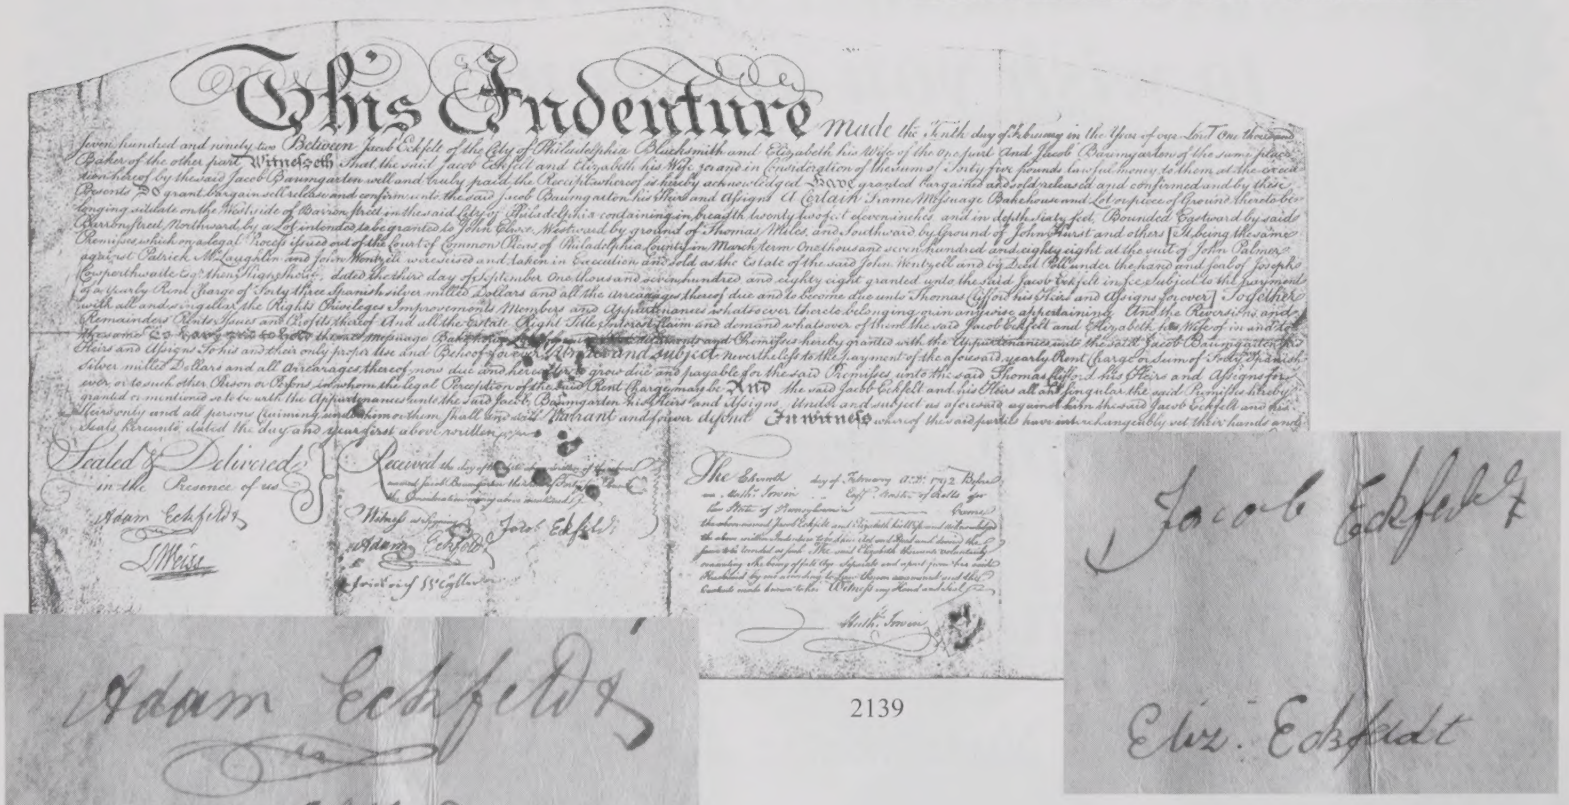 This Indenture made the Tenth day of February in the Year of our Lord One thousand
seven hundred and ninety two Between Jacob Eckfelt of the City of Philadelphia Blacksmith and Elizabeth his Wife of the one part And Jacob Baumgarten of the same place
Baker of the other part Witnesseth That the said Jacob Eckfelt and Elizabeth his Wife for and in Consideration of the sum of Forty five pounds lawful money to them at the
hereof by the said Jacob Baumgarten well and truly paid the Receipt whereof is hereby acknowledged Have granted bargained and sold released and confirmed and by these
Presents Do grant bargain sell release and confirm unto the said Jacob Baumgarten his Heirs and Assigns A Certain Frame Messuage Bakehouse and Lot or piece of Ground thereto be-
longing situate on the West side of Street in the said City of Philadelphia containing in breadth twenty two feet eleven inches, and in depth sixty feet, Bounded Eastward by said
Street, Northward by a Lot intended to be granted to John Westward by ground of Thomas Miles, and Southward by Ground of John Hurst and others It being the same
Premises which on a legal Process issued out of the Court of Common Pleas of Philadelphia County in March term One thousand seven hundred and eighty eight at the suit of John Palmer
against Patrick McLaughlin and John Wentzell were seised and taken in Execution and sold as the Estate of the said John Wentzell and by Deed Poll under the hand and seal of Joseph
Cowperthwaite Esqr. then High Sheriff dated the third day of September One thousand seven hundred and eighty eight granted unto the said Jacob Eckfelt in fee Subject to the payment
of a yearly Rent Charge of Forty three Spanish silver milled Dollars and all the arrearages thereof due and to become due unto Thomas Clifford his Heirs and Assigns for ever Together
with all and singular the Rights Privileges Improvements Members and Appurtenances whatsoever thereto belonging or in anywise appertaining And the Reversions and
Remainders Rents Issues and Profits thereof And all the Estate Right Title Interest Claim and demand whatsoever of them the said Jacob Eckfelt and Elizabeth his Wife of in and to
the same To have and to hold the Messuage and Premises hereby granted with the Appurtenances unto the said Jacob Baumgarten his
Heirs and Assigns To his and their only proper Use and Behoof for ever Under and subject nevertheless to the payment of the aforesaid yearly Rent Charge or Sum of Forty Spanish
silver milled Dollars and all arrearages thereof now due and hereafter to grow due and payable for the said Premises, unto the said Thomas Clifford his Heirs and Assigns for
ever or to such other Person or Persons in whom the legal Perception of the said Rent Charge may be And the said Jacob Eckfelt and his Heirs all and singular the said Premises hereby
granted or mentioned so to be with the Appurtenances unto the said Jacob Baumgarten his Heirs and Assigns Under and subject as aforesaid against him the said Jacob Eckfelt and his
Heirs only and all persons claiming under him or them Shall and will Warrant and forever defend In witness whereof the said parties have interchangeably set their hands and
Seals hereunto dated the day and year first above written
Sealed & Delivered
in the Presence of us
Adam Eckfeldt
Received the day of the date
Witness
Adam Eckfeldt
Jacob Eckfeldt
The day of February A.D. 1792 Before
me Esqr. Master of the Rolls for
the State of Pennsylvania
the above named Jacob Eckfelt and Elizabeth his Wife and acknowledged
the above written Indenture to be their Act and Deed and desired the
same to be recorded as such The said Elizabeth thereunto voluntarily
consenting She being of full Age Separate and apart from her said
Husband by me examined and the
Contents made known to her Witness my Hand and Seal
Adam Eckfeldt
2139
Jacob Eckfeldt
Eliz. Eckfeldt